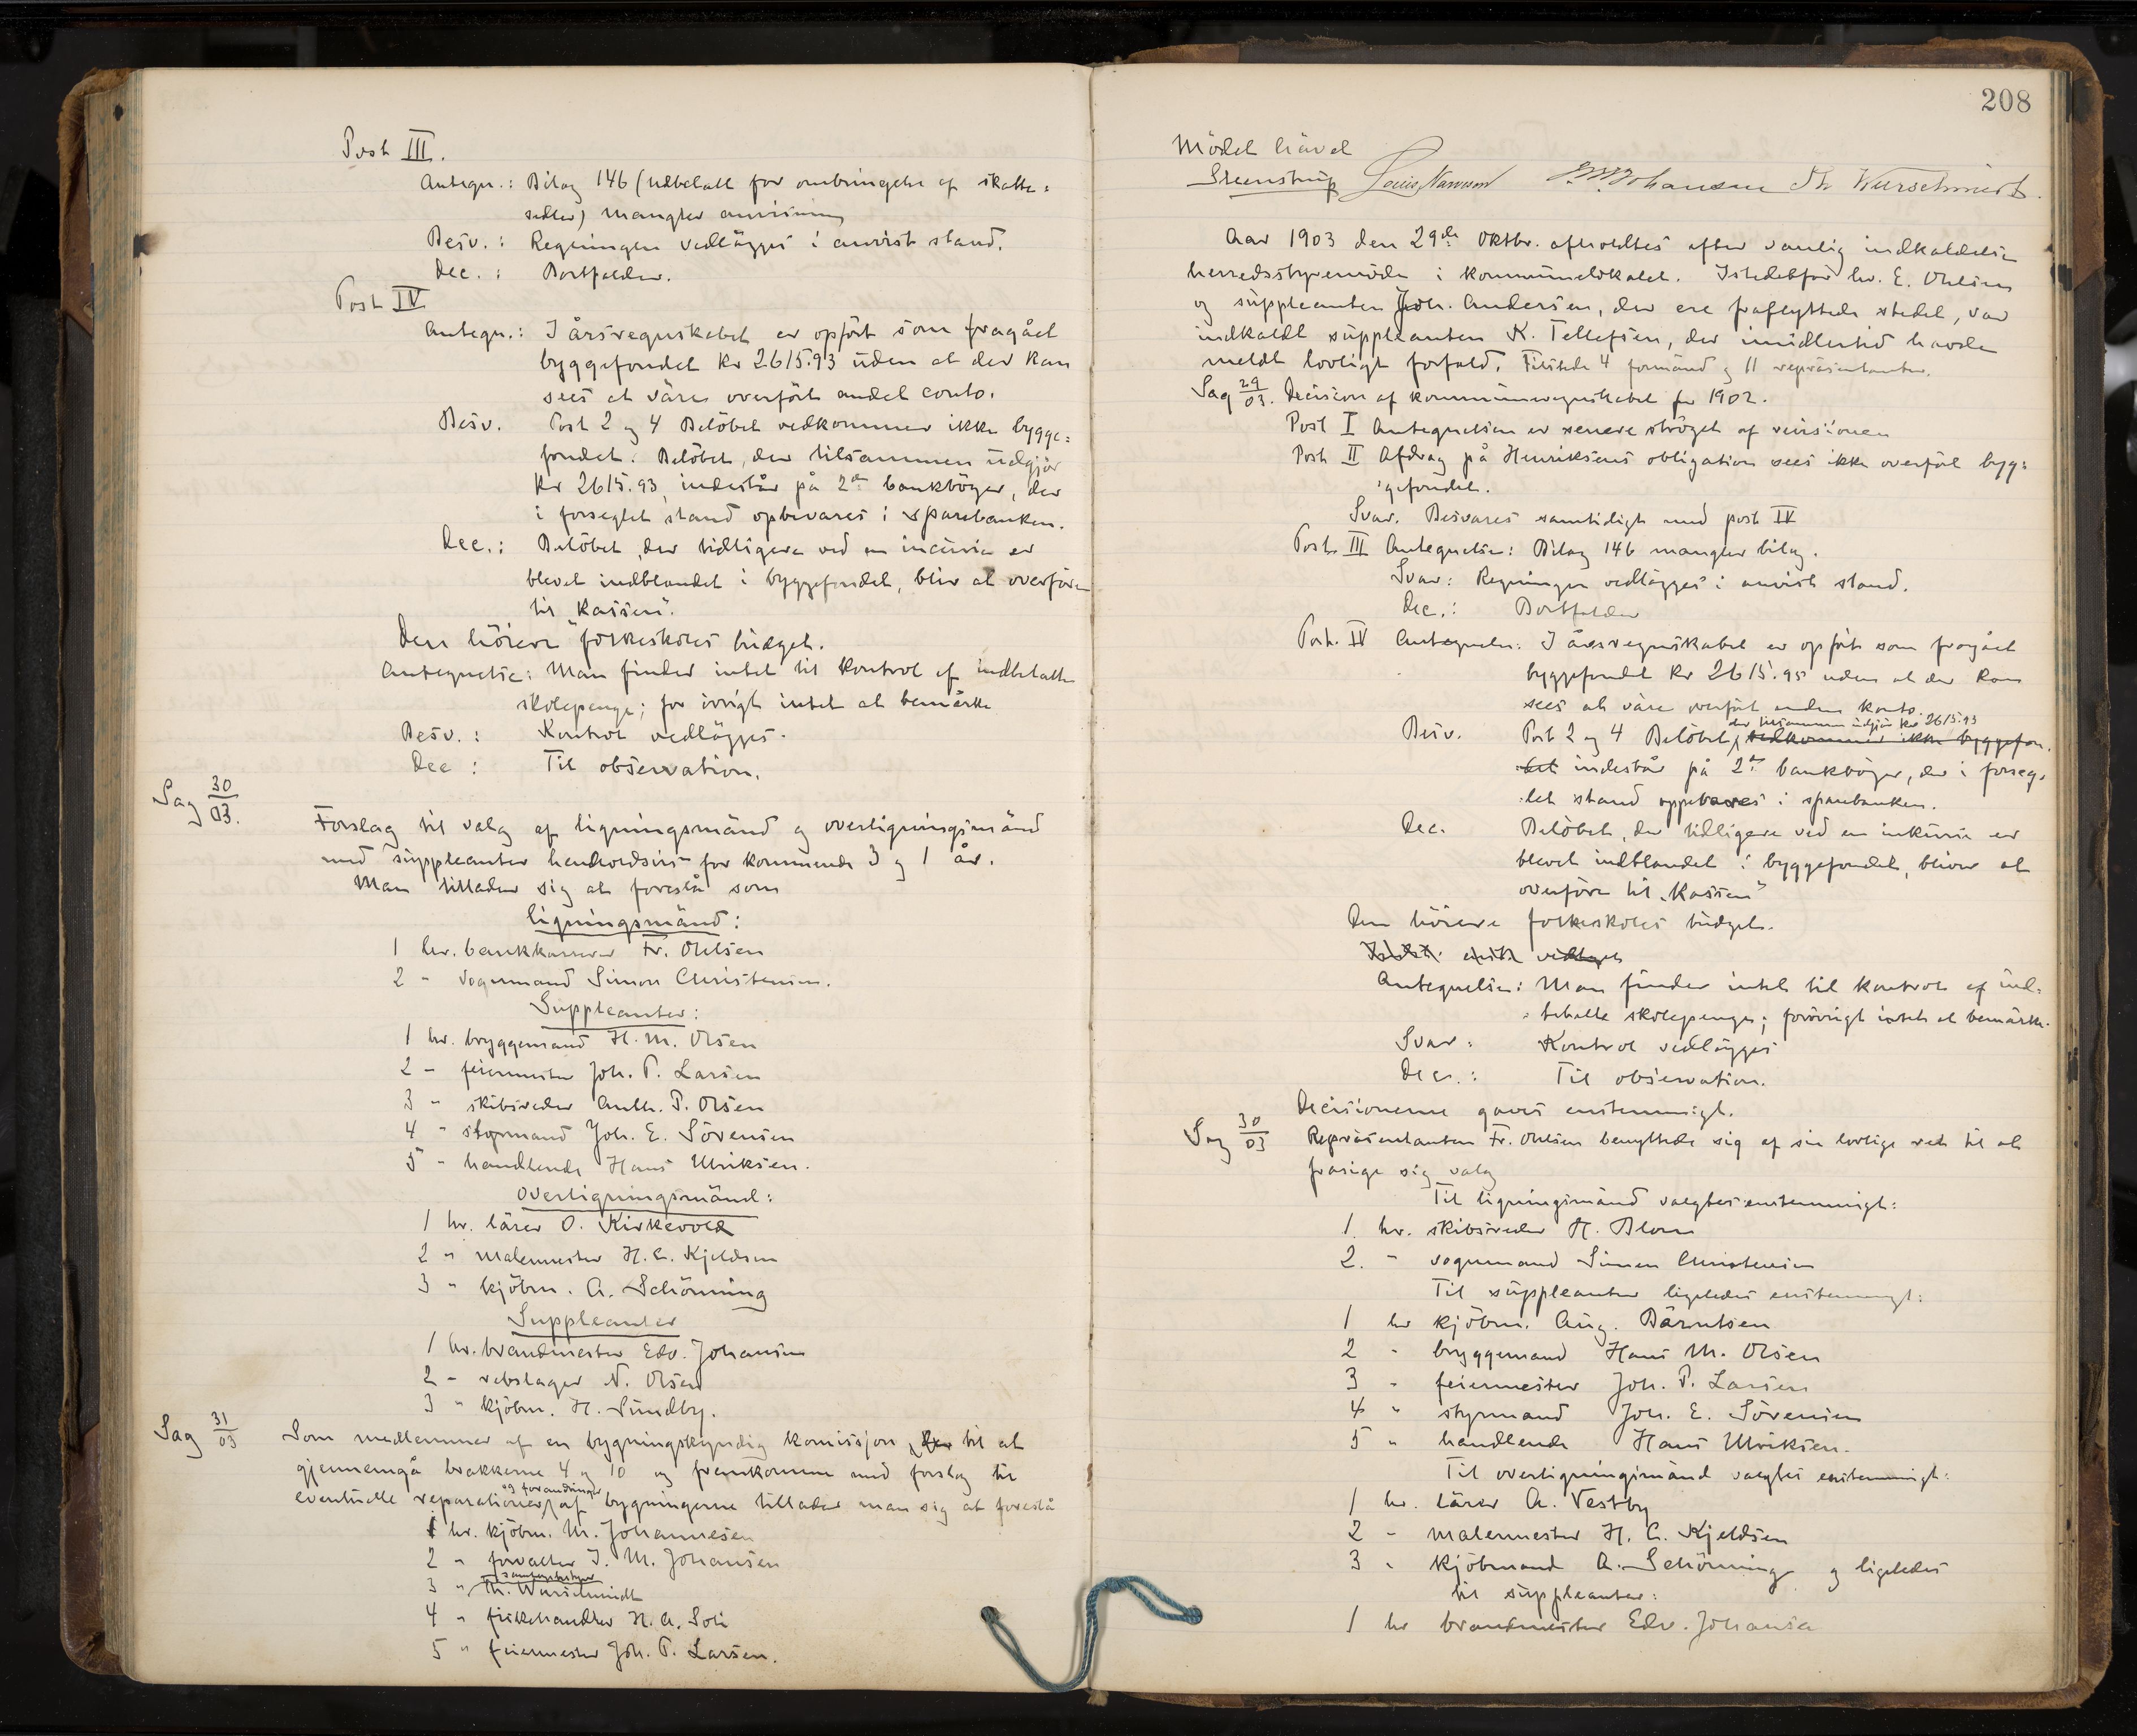 Post III.
Antegn.: Bilag 146 (udbetalt for ombringelse af skatte=
sedler) mangler anvisning
Besv.: Regningen vedlägges i anvist stand.
Dec.: Bortfalder.
Post IV
Antegn.: I årsregnskabet er opført som fragået
byggefondet Kr 2615.93 uden at der kan
sees at väre overført andet conto.
Besv. Post 2 og 4 Beløbet vedkommer ikke bygge=
fondet. Beløbet, der tilsammen udgjør
Kr 2615.93, indestår på 2de bankbøger, der
i forseglet stand opbevares i sparebanken.
Dec.: Beløbet, der tidligere ved en incurie er
blevet indblandet i byggefondet, blir at overføre
til "Kassen".
Den høiere folkeskoles budget.
Antegnelse: Man finder intet til kontrol af indbetalte
skolepenge; for øvrigt intet at bemärke
Besv.: Kontrol vedlägges.
Dec: Til observation.
Sag 30/03.
Forslag til valg af ligningsmänd og overligningsmänd
med suppleanter henholdsvis for kommende 3 og 1 år.
Man tillader sig at foreslå som
ligningsmänd:
1 hr. bankkasserer Fr. Ohlsen
2 " Vognmand Simon Christensen.
Suppleanter:
1 hr. bryggemand H. M. Olsen
2 " feiermester Joh. P. Larsen
3 " skibsreder Anth. P. Olsen
4 " styrmand Joh. E. Sørensen
5 " handlende Hans Ulriksen.
Overligningsmänd:
1 hr. lärer O. Kirkevold
2 " Malermester H. C. Kjeldsen
3 " kjøbm. A. Schönning
Suppleanter
1 hr. brandmester Edv. Johansen
2 " rebslager N. Olsen
3 " kjøbm. H. Sundby.
Sag 31/03 Som medlemmer af en bygningskyndig komissjon, der til at
gjennemgå brakkerne 4 og 10 og fremkomme med forslag til
og forandringer
eventuelle reparationer af bygningerne tillader man sig at foreslå
1 hr. kjøbm. M. Johannesen
2 " forvalter J. M. Johansen
3 " Th. Wurschmidt
4 " fiskehandler H. A. Soli
5 " feiermester Joh. P. Larsen.
208
Mödet hävet
Steenstrup Louis Narvesen J. M. Johansen Th Wurschmidt.
Aar 1903 den 29de Oktbr. afholdtes efter vanlig indkaldelse
herredsstyremøde i kommunelokalet. Istedetfor hr. E. Ohlsen
og suppleanten Joh. Andersen, der ere fraflyttede stedet, var
indkaldt suppleanten K. Tellefsen, der imidlertid havde
meldt lovligt forfald. Tilstede 4 formänd og 11 repräsentanter.
Sag 29/03. Decision af kommuneregnskabet for 1902.
Post I Antegnelsen er senere strøget af revisionen
Post II Afdrag på Henriksens obligation sees ikke overført byg=
gefondet.
Svar. Besvares samtidigt med post IV
Post III Antegnelse: Bilag 146 mangler bilag.
Svar: Regningen vedlägges i anvist stand.
Dec.: Bortfalder
Post. IV Antegnelse: I årsregnskabet er opført som fragået
byggefondet Kr 2615.95 uden at der kan
sees at väre overført anden konto.
der tilsammen udgjør Kr 2615.93
Besv. Post 2 og 4 Beløbet, vedkommer ikke byggefon-
det indestår på 2de bankbøger, der i forseg-
let stand oppebares i sparebanken.
Dec. Beløbet, der tidligere ved en inkurie er
blevet indblandet i byggefondet, bliver at
overføre til "Kassen"
Den høiere folkeskoles budget.
Antegnelse: Man finder intet til kontrol af ind=
betalte skolepenge; forøvrigt intet at bemärke.
Svar: Kontrol vedlägges
Dec.: Til observation.
Decisionerne gaves enstemmigt.
Sag 30/03 Repräsentanten Fr. Ohlsen benyttede sig af sin lovlige ret til at
frasige sig valg
Til ligningsmänd valgtes enstemmigt:
1. hr. skibsreder H. Blom
2. " vognmand Simon Christensen
Til suppleanter ligeledes enstemmigt:
1 hr kjøbm. Aug. Bärntsen
2 " bryggemand Hans M. Olsen
3 " feiermester Joh. P. Larsen
4 " styrmand Joh. E. Sørensen
5 " handlende Hans Ulriksen.
Til overligningsmänd valgtes enstemmigt:
1 hr. lärer A. Vestby
2 " malermester H. C. Kjeldsen
3 " kjøbmand A. Schönning og ligeledes
til suppleanter:
1 hr brandmester Edv. Johansen